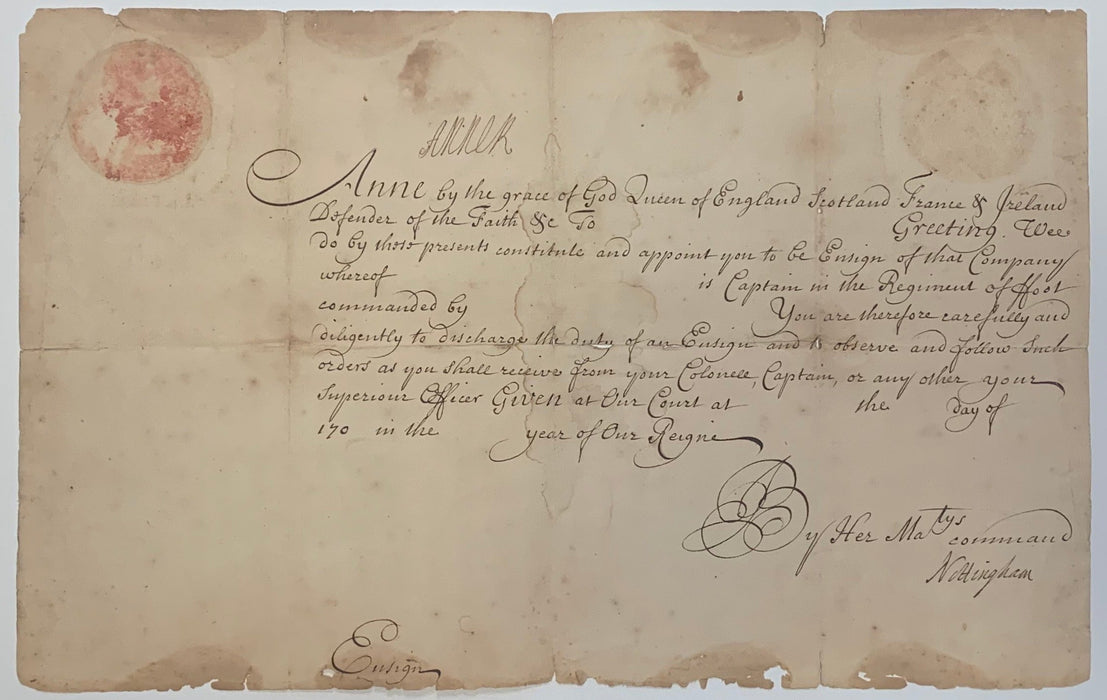 ANNE R
Anne by the grace of God Queen of England Scotland France & Ireland
Defender of the Faith &c To Greeting. Wee
do by these presents constitute and appoint you to be Ensign of that Company
whereof is Captain in the Regiment of ffoot
commanded by You are therefore carefully and
diligently to discharge the duty of an Ensign and to observe and follow Such
orders as you shall receive from your Colonell, Captain, or any other your
Superiour Officer Given at Our Court at the day of
170 in the year of Our Reigne
By Her Ma^tys command
Nottingham
Ensign